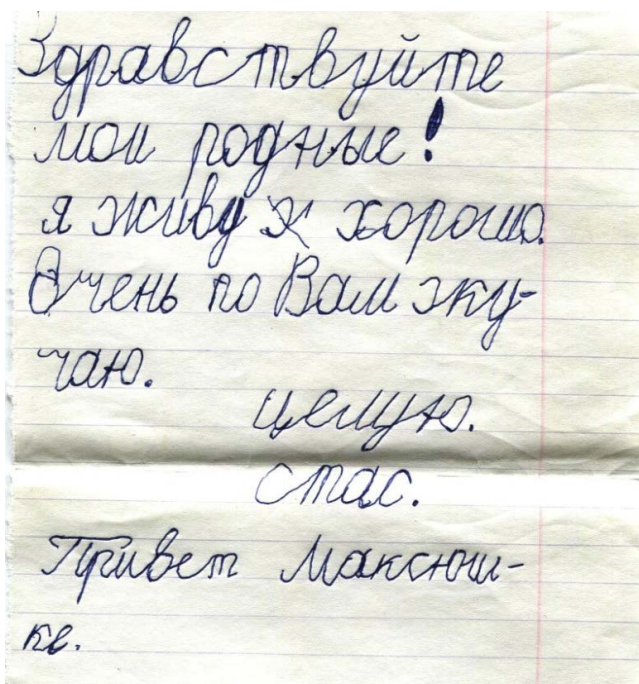 Здравствуйте
мои родные!
я живу х хорошо.
Очень по Вам зку-
чаю.
целую.
стас.
Привет Максюш-
ке.